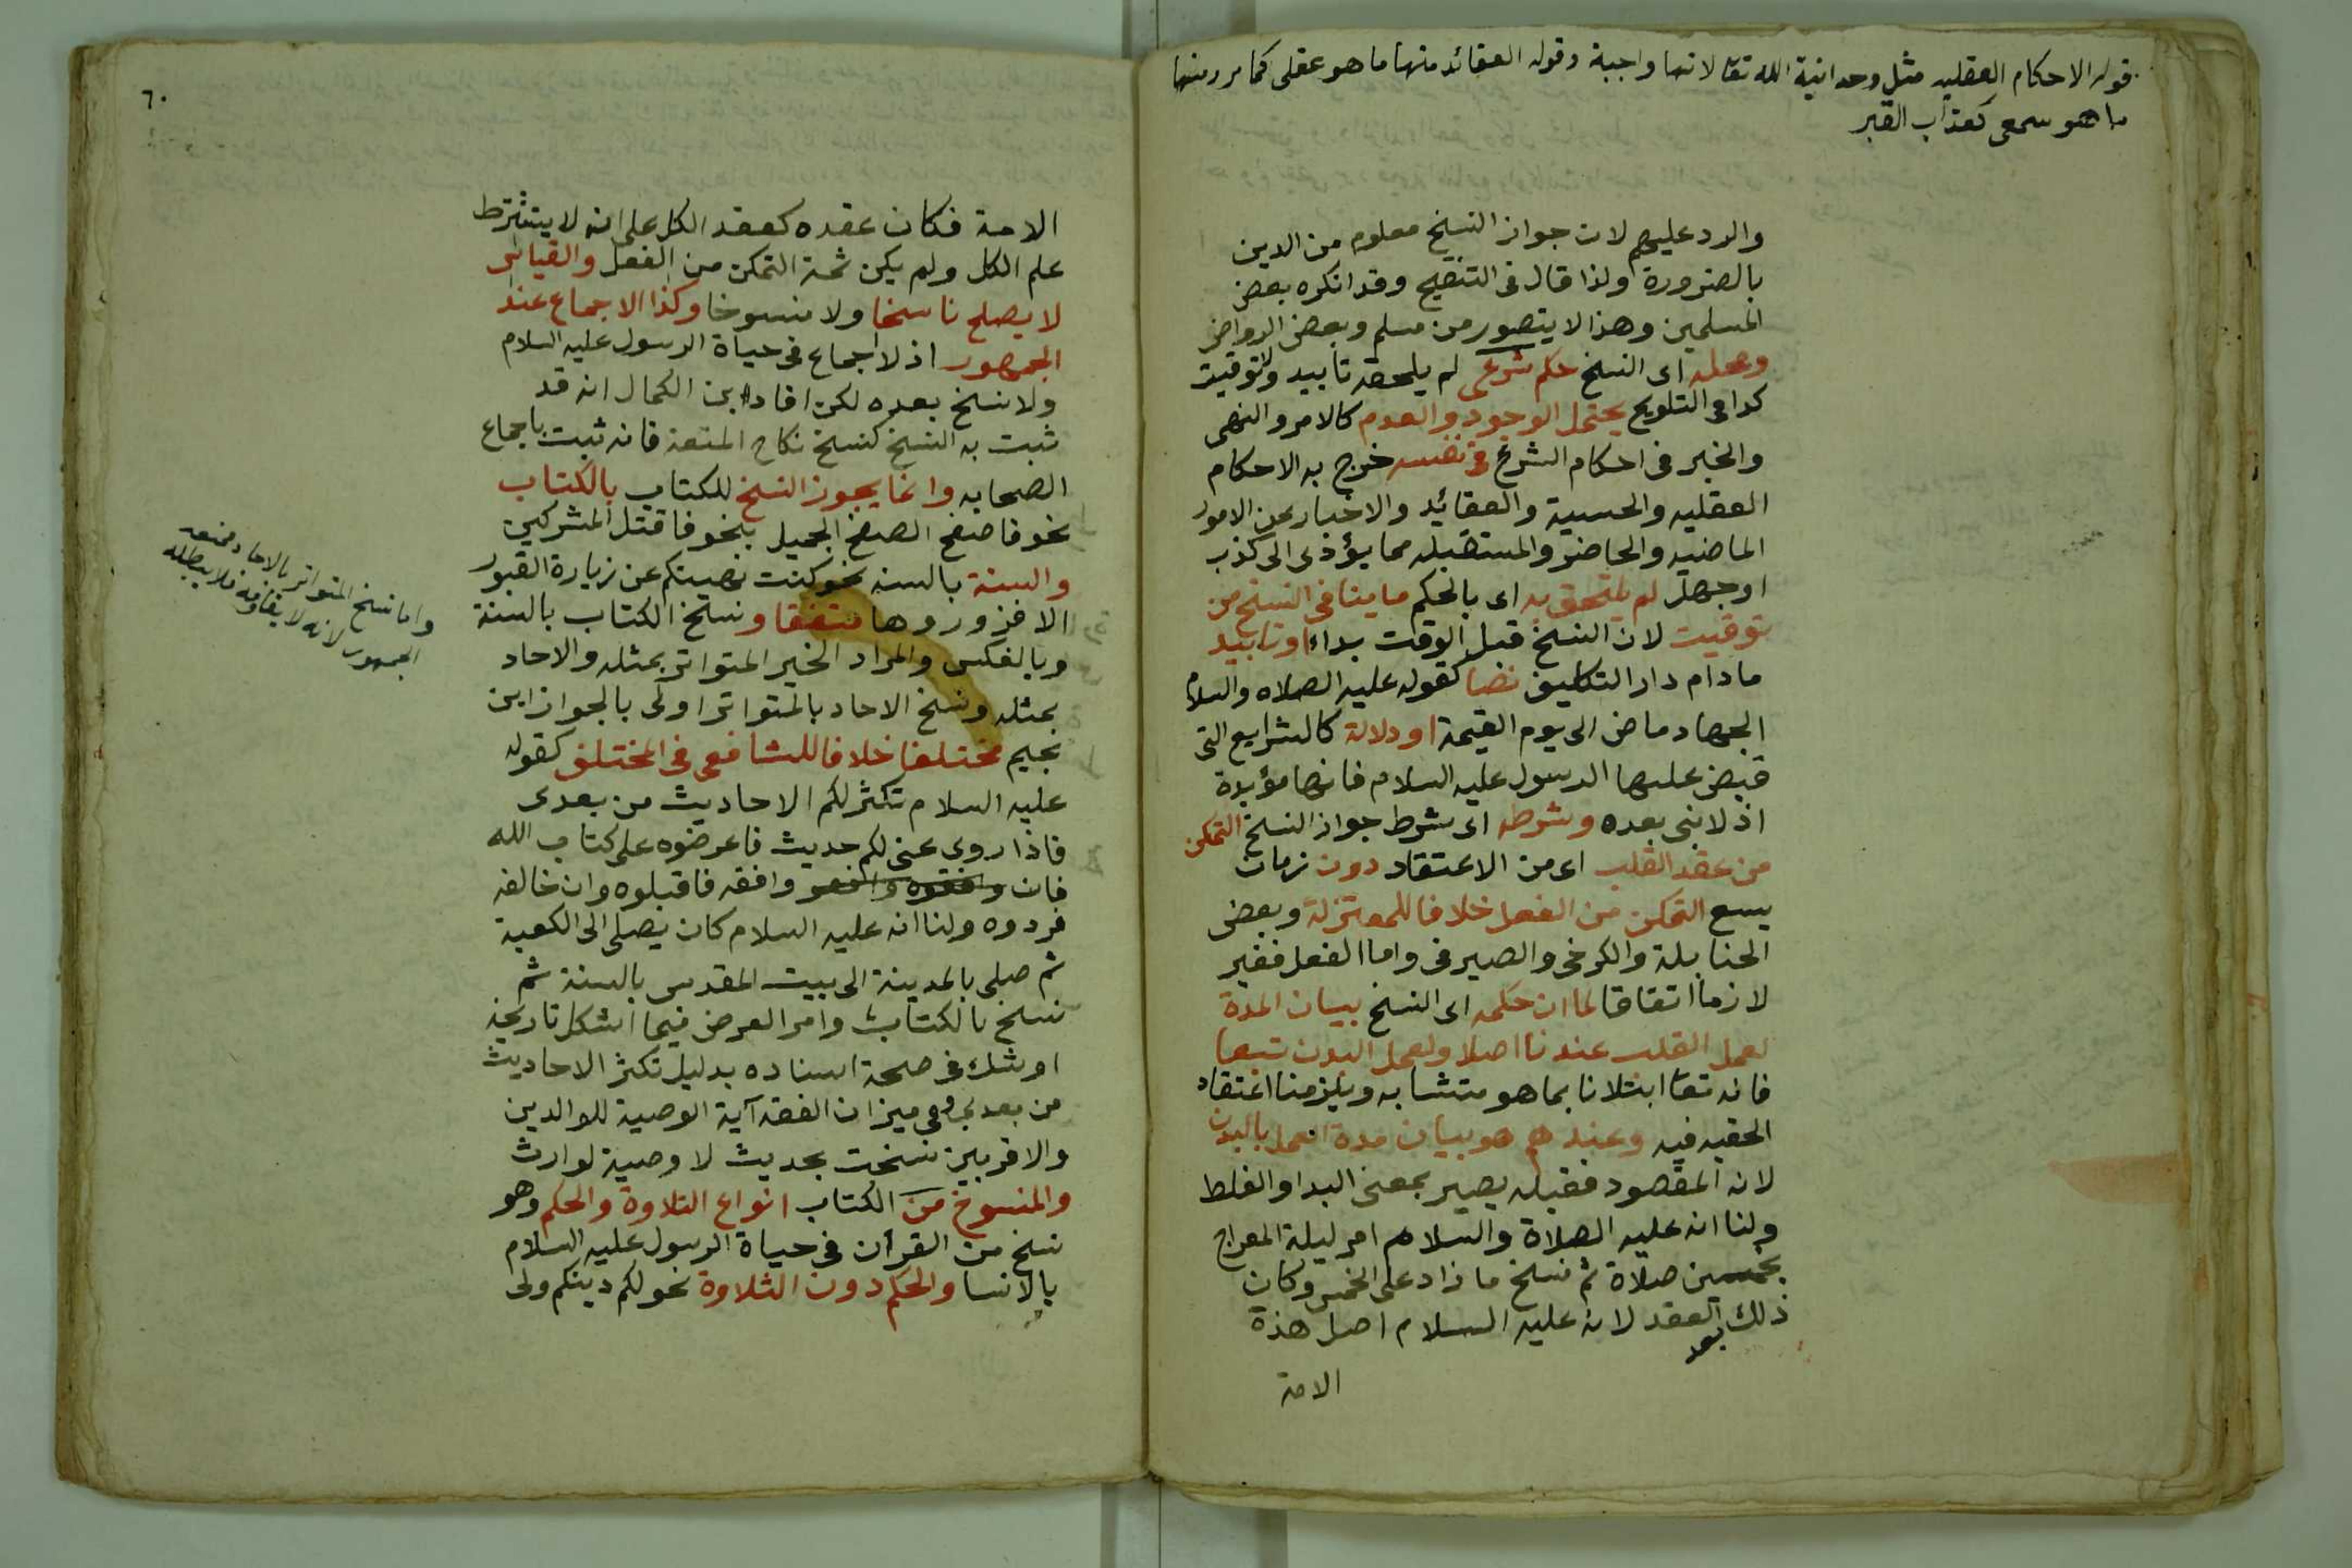 قوله الاحكام العقليه مثل وحدانية الله تعا لانها واجبة وقوله العقائد منها ما هو عقلى كما مر ومنها
ما هو سمعى كعذاب القبر
والرد عليهم لان جواز النسخ معلوم من الدين
بالضرورة ولذا قال فى التنقيح وقد انكره بعض
المسلمين وهذا لا يتصور من مسلم وبعض الروافض
ومحله اى النسخ حكم شرعى لم يلحقه تأبيد ولا توقيت
كدا فى التلويح يحتمل الوجود والعدم كالامر والنهى
والخبر فى احكام الشرع فى نفسه خرج به الاحكام
العقليه والحسية والعقائد والاخبار عن الامور
الماضيه والحاضرة والمستقبله مما يؤدى الى كذب
اوجهل لم يلتحق به اى بالحكم ما ينافى النسخ من
توقيت لان النسخ قبل الوقت بداء اوتأبيد
مادام دار التكليف نصا كقوله عليه الصلاه والسلام
الجهاد ماض الى يوم القيمة اودلالة كالشرايع التى
قبض عليها الرسول عليه السلام فانها مؤبدة
اذ لا نبى بعده وشرطه اى شرط جواز النسخ التمكن
من عقد القلب اى من الاعتقاد دون زمان
يسع التمكن من الفعل خلافا للمعتزلة وبعض
الحنابلة والكرخى والصيرفى واما الفعل فغير
لازما اتفاقا لما ان حكمه اى النسخ بيان المدة
لعمل القلب عندنا اصلا ولعمل البدن تبعا
فانه تعا ابتلانا بما هو متشابه ويلزمنا اعتقاد
الحقيه فيه وعندهم هو بيان مدة العمل بالبدن
لانه المقصود فقبله يصير بمعنى البدا والغلط
ولنا انه عليه الصلاة والسلام امر ليلة المعراج
بخمسين صلاة ثم نسخ ما زاد على الخمس وكان
ذلك بعد العقد لانه عليه السلام اصل هذة
الامة
٦٠
الامة فكان عقده كعقد الكل على انه لا يشترط
علم الكل ولم يكن ثمة التمكن من الفعل والقياس
لا يصلح ناسخا ولا منسوخا وكذا الاجماع عند
الجمهور اذ لا اجماع فى حياة الرسول عليه السلام
ولا نسخ بعده لكن افاد ابن الكمال انه قد
ثبت به النسخ كنسخ نكاح المتعة فانه ثبت باجماع
الصحابه وانما يجوز النسخ للكتاب بالكتاب
نحو فاصفح الصفح الجميل بنحو فاقتل المشركين
والسنة بالسنه نحو كنت نهيتكم عن زيارة القبور
الا فزوروها متفقا ونسخ الكتاب بالسنة
وبالعكس والمراد الخبر المتواتر بمثله والاحاد
بمثله ونسخ الاحاد بالمتواتر اولى بالجواز ابن
نجيم مختلفا خلافا للشافعى فى المختلف كقوله
عليه السلام تكثر لكم الاحاديث من بعدى
فاذا روى عنى لكم حديث فاعرضوه على كتاب الله
فان وافقه فاقبلوه وان خالفه
فردوه ولنا انه عليه السلام كان يصلى الى الكعبة
ثم صلى بالمدينة الى بيت المقدس بالسنة ثم
نسخ بالكتاب وامر العرض فيما اشكل تاريخه
اوشك فى صحة اسناده بدليل تكثر الاحاديث
من بعدى وفى ميزان الفقه آية الوصية للوالدين
والاقربين نسخت بحديث لا وصية لوارث
والمنسوخ من الكتاب انواع التلاوة والحكم وهو
نسخ من القرآن فى حياة الرسول عليه السلام
بالانسا والحكم دون التلاوة نحو لكم دينكم ولى
واما نسخ المتواتر بالاحاد فمنعه
الجمهور لانه لا يقاومه فلا يبطله